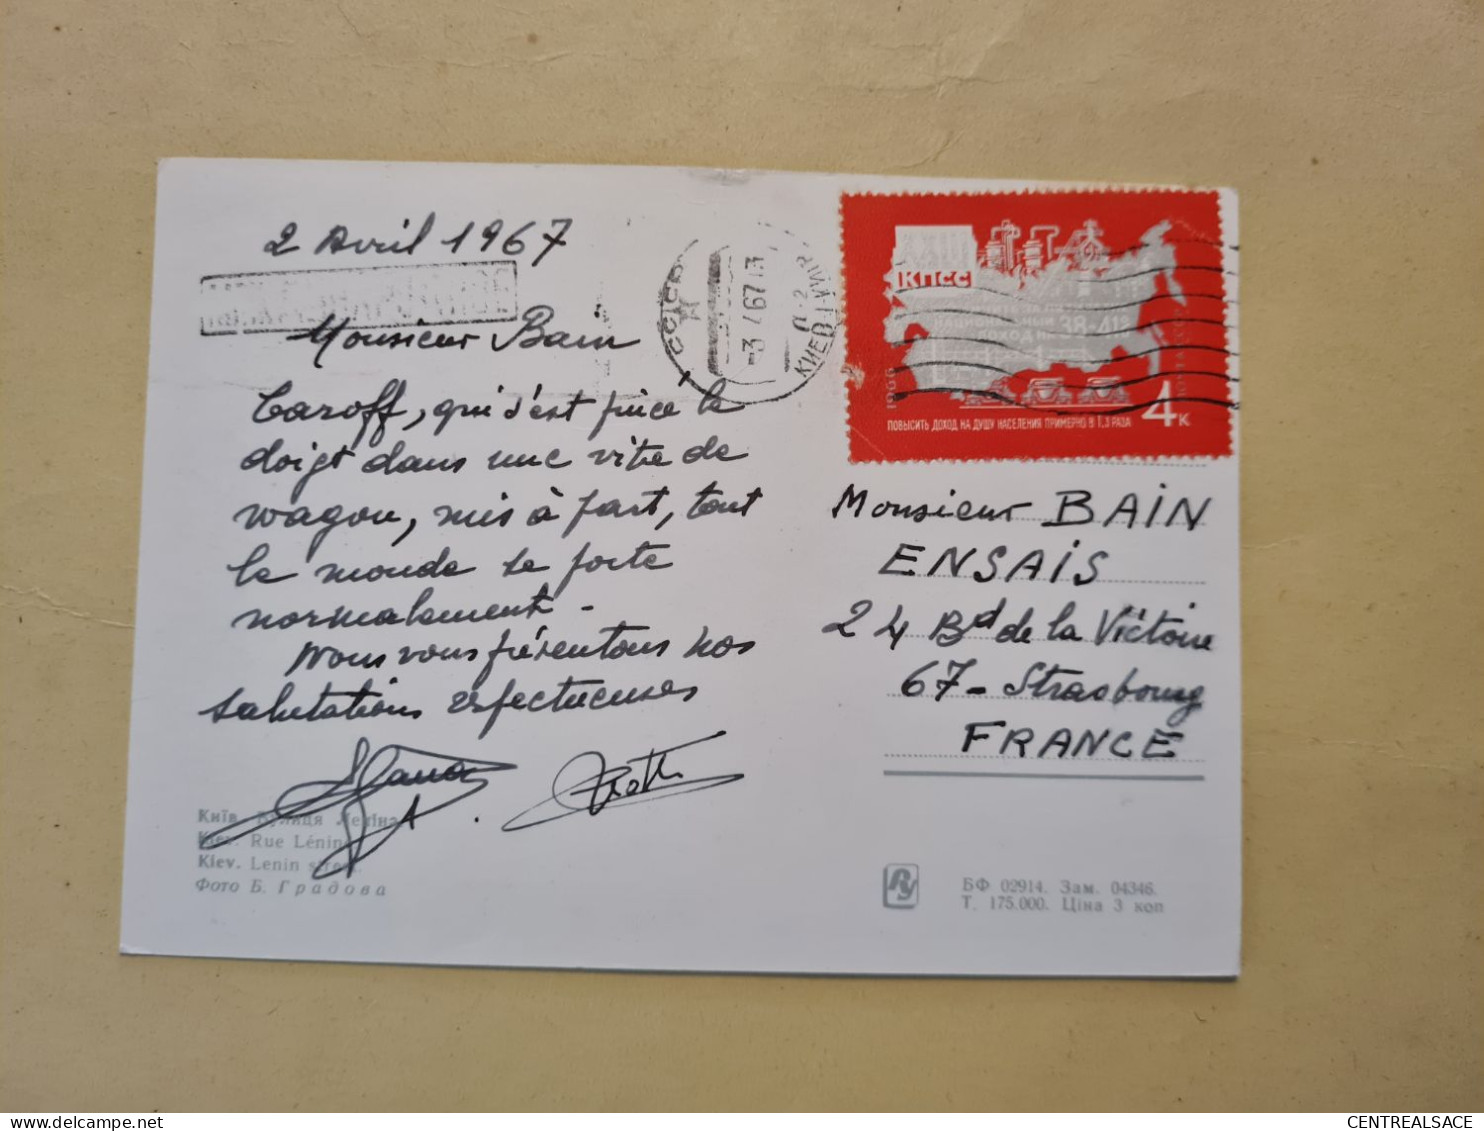 2 Avril 1967
Monsieur Bain
Caroff, qui s'est pincé le
doigt dans une vitre de
wagon, mis à part, tout
le monde se porte
normalement -
Nous vous présentons nos
salutations respectueuses
Київ. Вулиця Леніна
Kiev. Rue Lénine
Kiev. Lenin street
Фото Б. Градова
СССР
-3 4 67 13
КИЕВ
КПСС
38-41%
1966
4к
ПОВЫСИТЬ ДОХОД НА ДУШУ НАСЕЛЕНИЯ ПРИМЕРНО В 1,3 РАЗА
Monsieur BAIN
ENSAIS
24 Bd de la Victoire
67- Strasbourg
FRANCE
РУ
БФ 02914. Зам. 04346.
Т. 175.000. Ціна 3 коп
CENTREALSACE